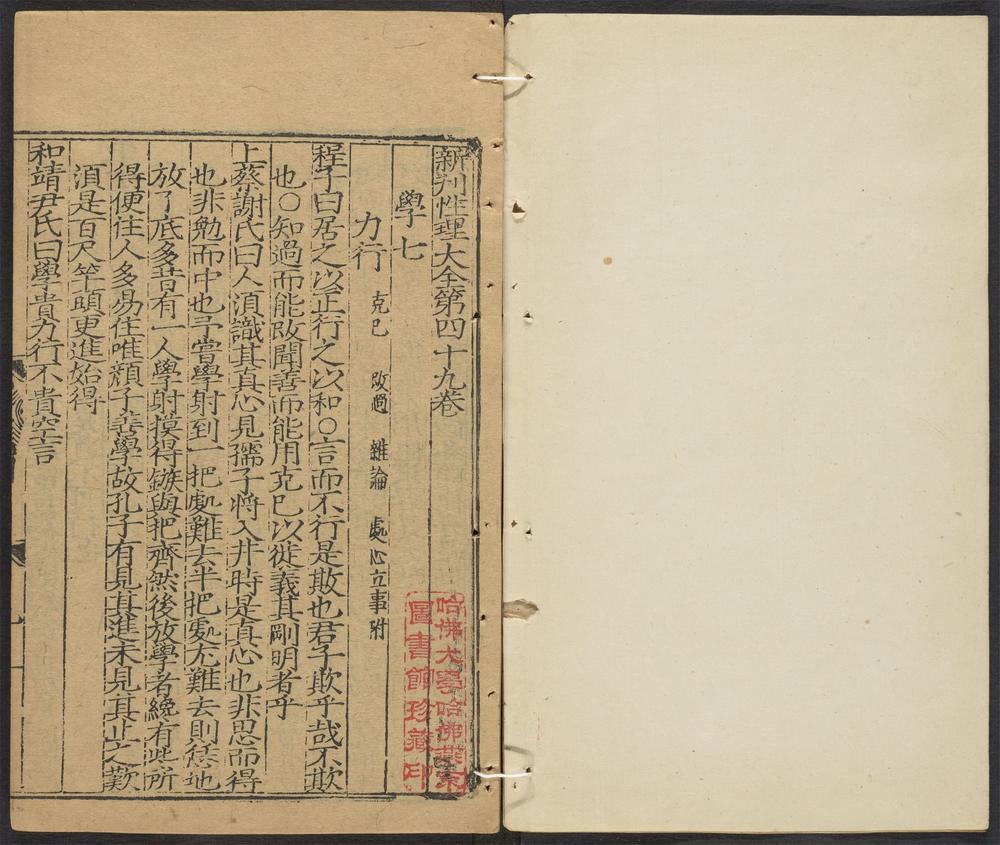 新刊性理大全第四十九卷
學七
力行 克已 改過 雜論 處心立事附
程子曰居之以正行之以和○言而不行是欺也君子欺乎哉不欺
也○知過而能改聞善而能用克已以從義其剛明者乎
上蔡謝氏曰人湏識其真心見孺子將入井時是真心也非思而得
也非勉而中也予嘗學射到一把處難去半把處尤難去則恁地
放了底多昔有一人學射摸得鏃與把齊然後放學者纔有些所
得便住人多易住唯顔子善學故孔子有見其進未見其止之歎
湏是百尺竿頭更進始得
和靖尹氏曰學貴力行不貴空言
哈佛大學哈佛燕京
圖書館珍藏印